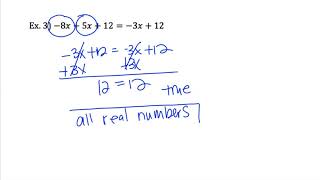 Ex. 3) −8x + 5x + 12 = −3x + 12
-3x+12 = -3x+12
+3x +3x
12 = 12 true
all real numbers